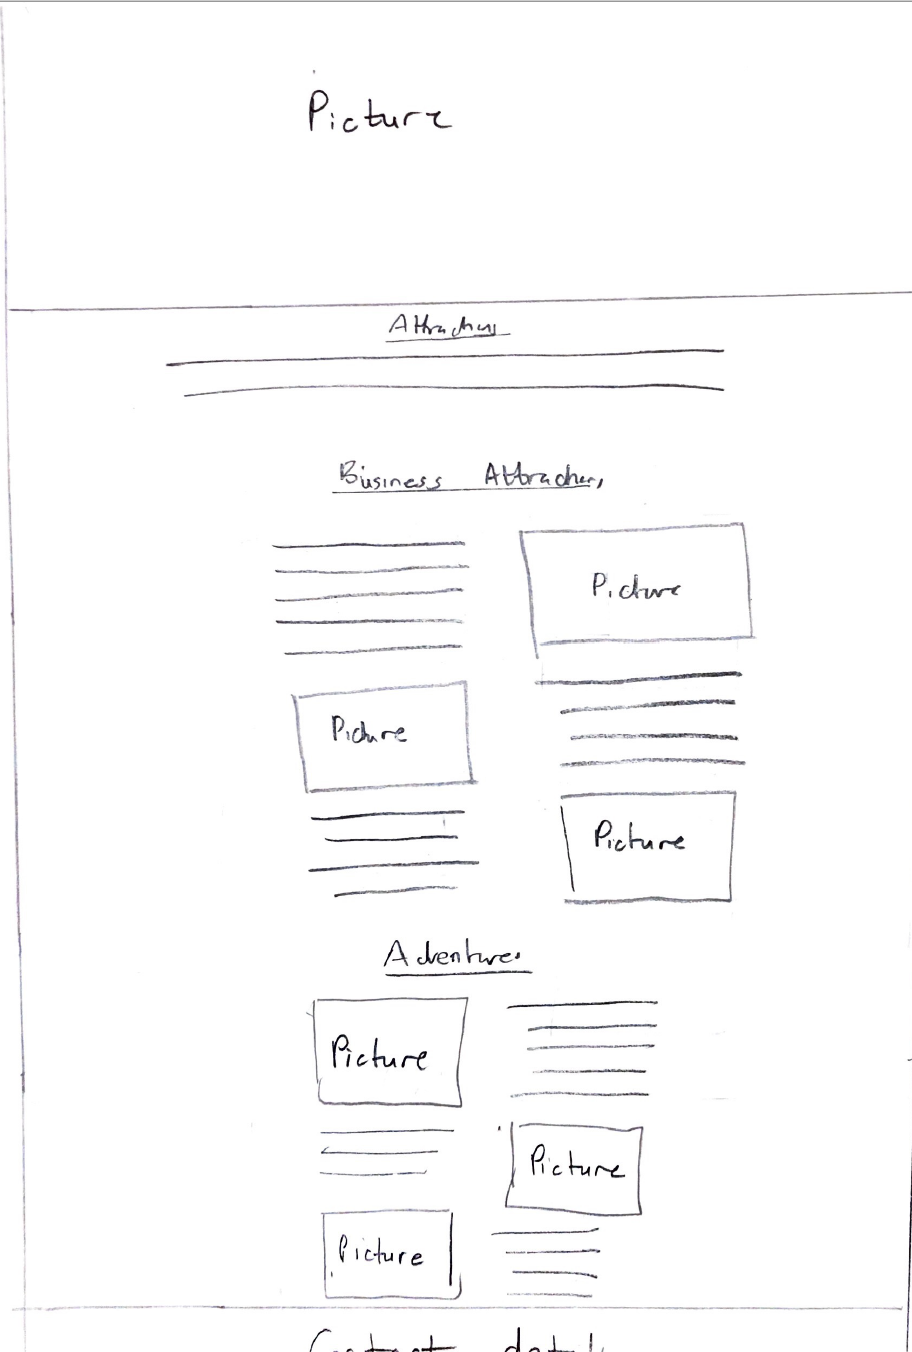 Picture
Attractions
Business Attractions
Picture
Picture
Picture
Adventures
Picture
Picture
Picture
Contact details